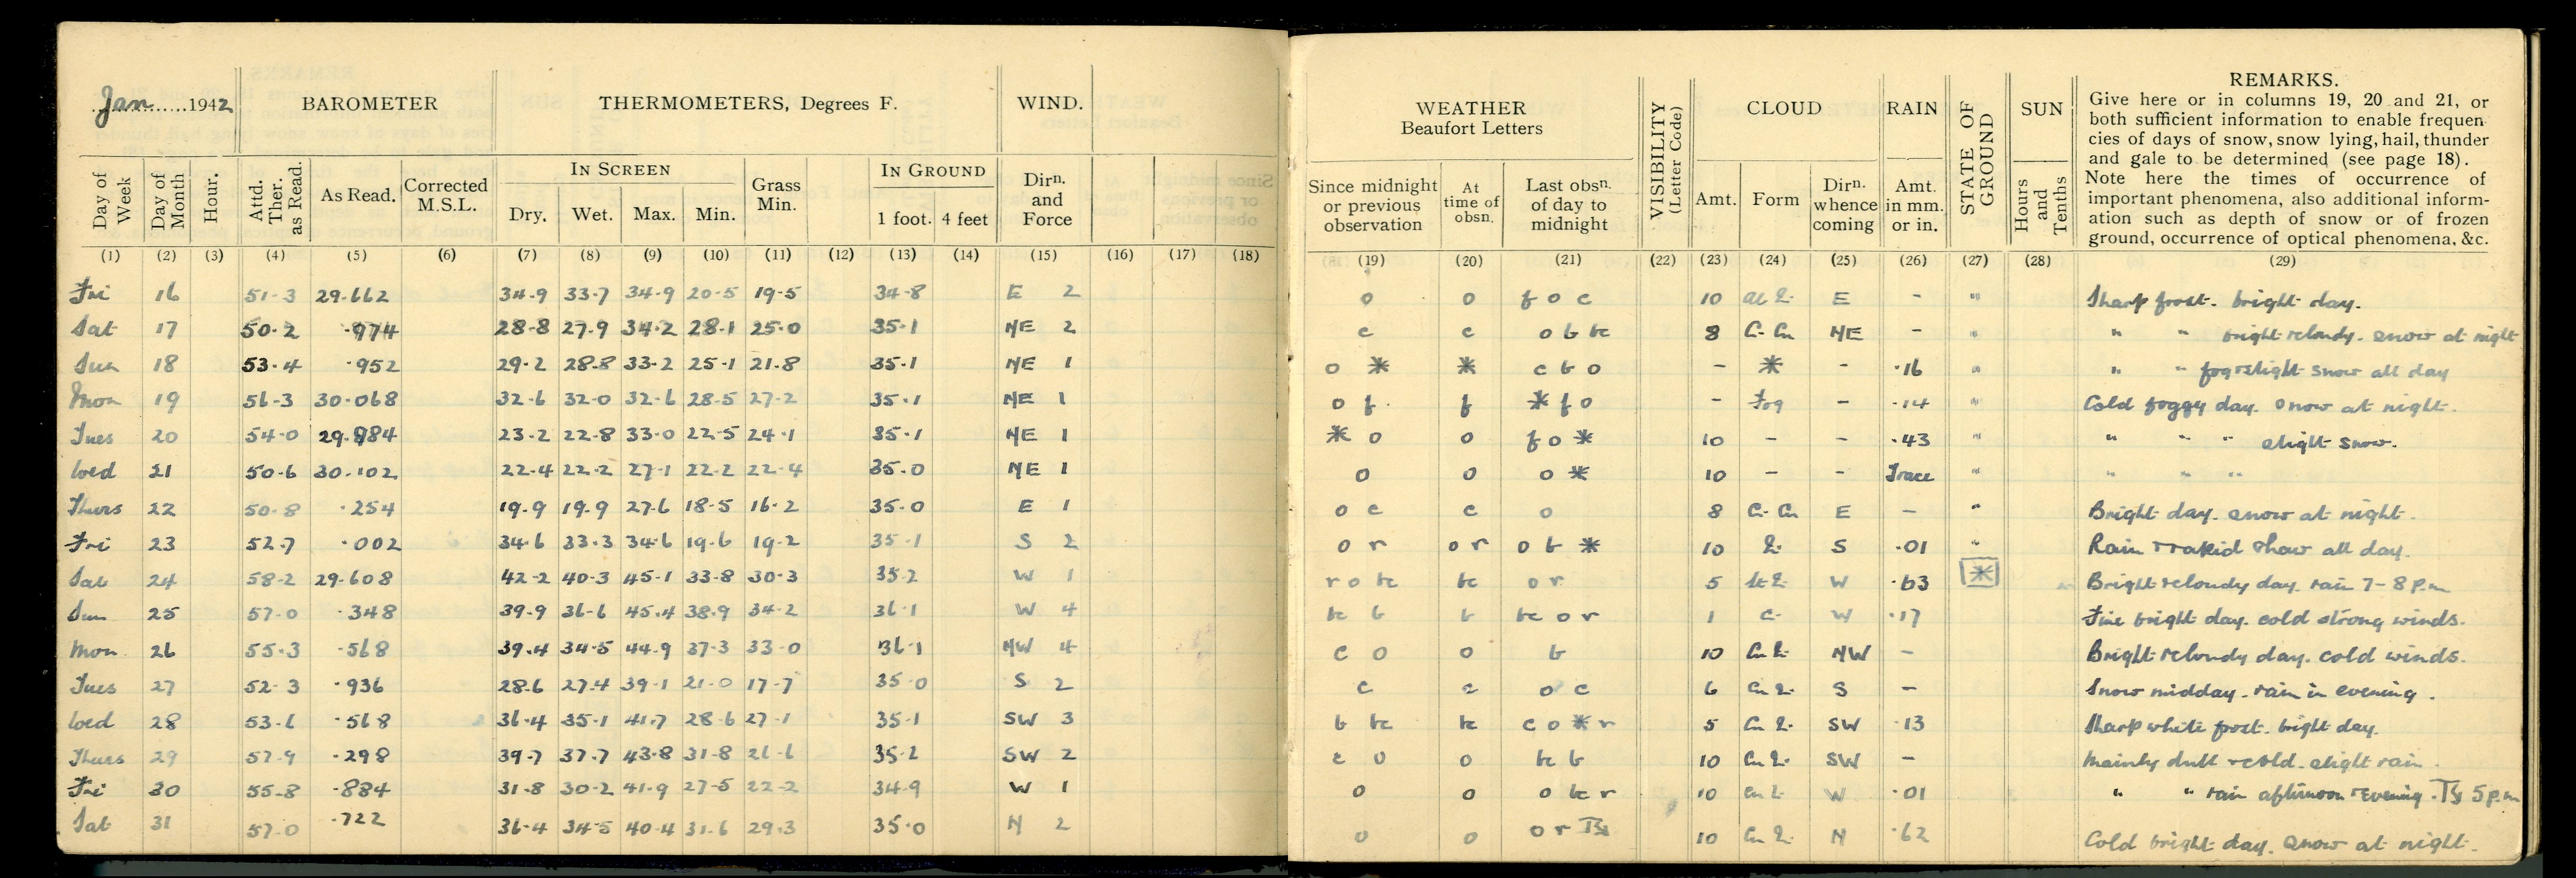 Jan 1942 BAROMETER THERMOMETERS, Degrees F. WIND. WEATHER Beaufort Letters VISIBILITY (Letter Code) CLOUD RAIN STATE OF GROUND SUN REMARKS.
Give here or in columns 19, 20 and 21, or
both sufficient information to enable frequen-
cies of days of snow, snow lying, hail, thunder
and gale to be determined (see page 18).
Note here the times of occurrence of
important phenomena, also additional inform-
ation such as depth of snow or of frozen
ground, occurrence of optical phenomena, &c.
IN SCREEN Grass Min. IN GROUND Dirn. and Force
Day of Week Day of Month Hour. Attd. Ther. as Read. As Read. Corrected M.S.L. Dry. Wet. Max. Min. 1 foot. 4 feet Since midnight or previous observation At time of obsn. Last obsn. of day to midnight Amt. Form Dirn. whence coming Amt. in mm. or in. Hours and Tenths
(1) (2) (3) (4) (5) (6) (7) (8) (9) (10) (11) (12) (13) (14) (15) (16) (17) (18) (19) (20) (21) (22) (23) (24) (25) (26) (27) (28) (29)
Fri 16 51.3 29.662 34.9 33.7 34.9 20.5 19.5 34.8 E 2 o o f o c 10 E - " Sharp frost. bright day.
Sat 17 50.2 .974 28.8 27.9 34.2 28.1 25.0 35.1 NE 2 c c o b bc 8 C. Cu NE - " " " bright & cloudy. Snow at night
Sun 18 53.4 .952 29.2 28.8 33.2 25.1 21.8 35.1 NE 1 o * * c b o - * - .16 " " " fog & slight snow all day
Mon 19 56.3 30.068 32.6 32.0 32.6 28.5 27.2 35.1 NE 1 o f f * f o - Fog - .14 " Cold foggy day. Snow at night.
Tues 20 54.0 29.984 23.2 22.8 33.0 22.5 24.1 35.1 NE 1 * o o f o * 10 - - .43 " " " " slight snow.
Wed 21 50.6 30.102 22.4 22.2 27.1 22.2 22.4 35.0 NE 1 o o o * 10 - - Trace " " " "
Thurs 22 50.8 .254 19.9 19.9 27.6 18.5 16.2 35.0 E 1 o c c o 8 C. Cu E - " Bright day. Snow at night.
Fri 23 52.7 .002 34.6 33.3 34.6 19.6 19.2 35.1 S 2 o r o r o b * 10 S .01 " Rain all day.
Sat 24 58.2 29.608 42.2 40.3 45.1 33.8 30.3 35.2 W 1 r o bc bc o r 5 W .63 * Bright & cloudy day. rain 7-8 p.m
Sun 25 57.0 .348 39.9 36.6 45.4 38.9 34.2 36.1 W 4 bc b b bc o r 1 c. W .17 Fine bright day. cold strong winds.
Mon 26 55.3 .568 39.4 34.5 44.9 37.3 33.0 36.1 NW 4 c o o b 10 NW - Bright & cloudy day. cold winds.
Tues 27 52.3 .936 28.6 27.4 39.1 21.0 17.7 35.0 S 2 c c o c 6 S - Snow midday. rain in evening.
Wed 28 53.6 .568 36.4 35.1 41.7 28.6 27.1 35.1 SW 3 b bc bc c o * r 5 SW .13 Sharp white frost. bright day.
Thurs 29 57.9 .298 39.7 37.7 43.8 31.8 26.6 35.2 SW 2 c o o bc b 10 SW - Mainly dull & cold. slight rain.
Fri 30 55.8 .884 31.8 30.2 41.9 27.5 22.2 34.9 W 1 o o o bc r 10 W .01 " " rain afternoon & evening. 5 p.m
Sat 31 57.0 .722 36.4 34.5 40.4 31.6 29.3 35.0 N 2 o o o r 10 N .62 Cold bright day. Snow at night.